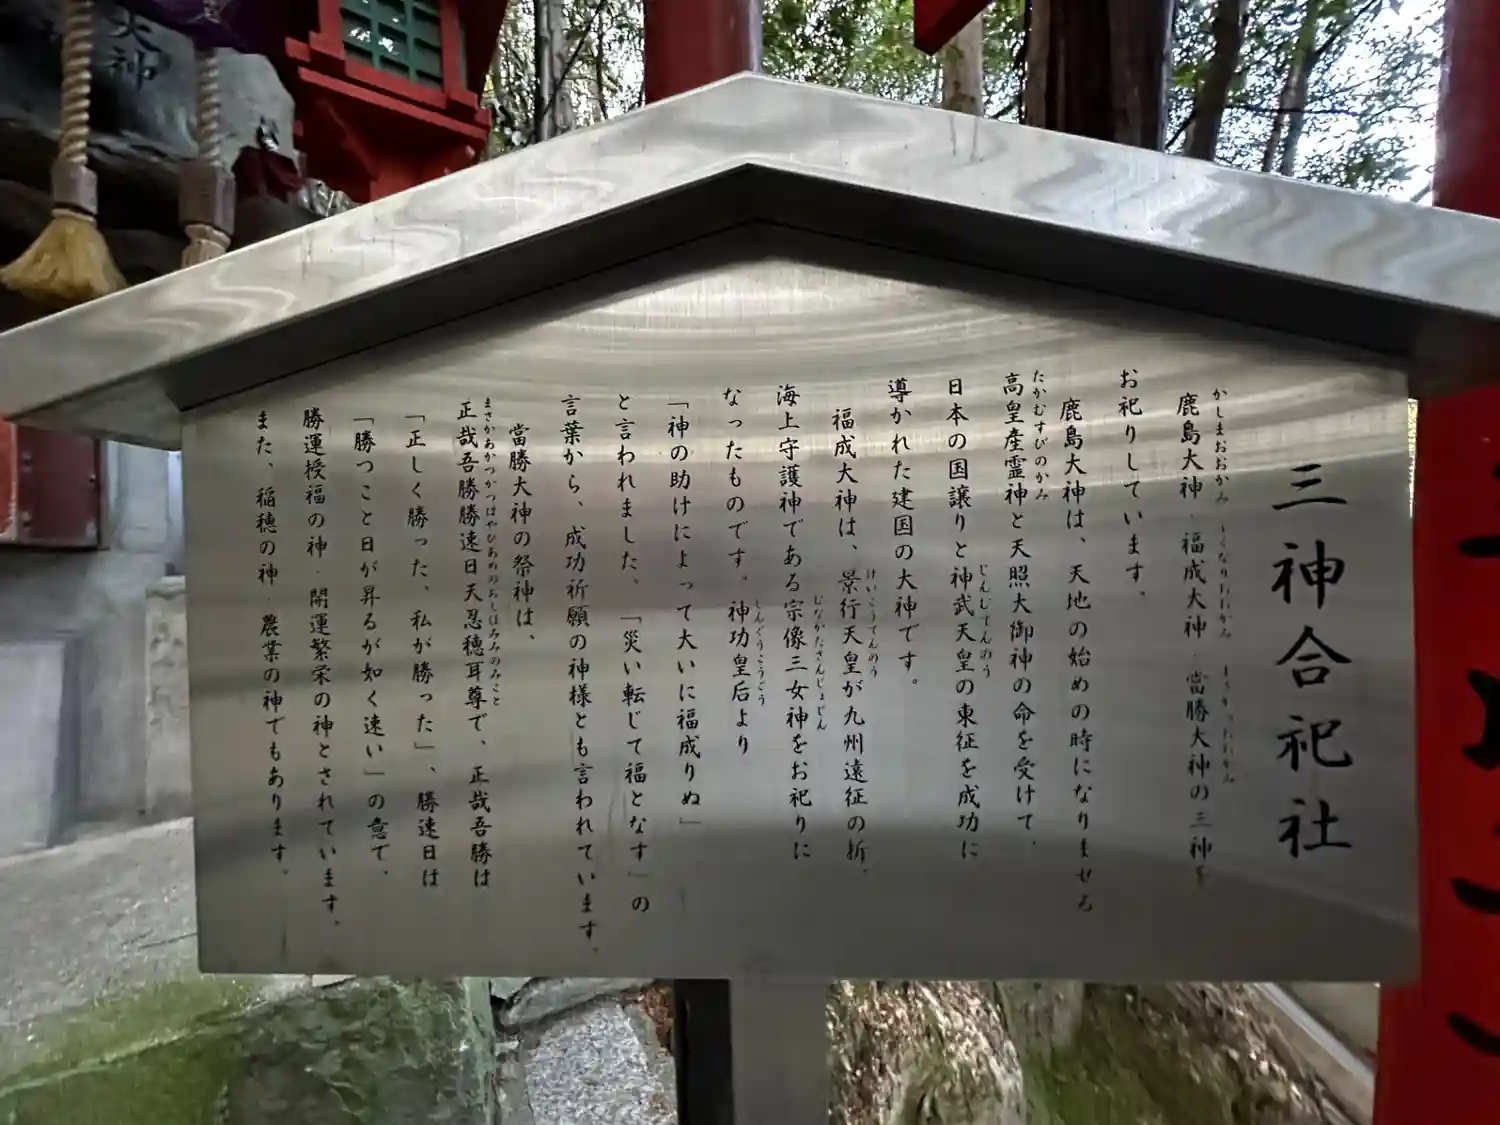 三神合祀社
鹿島大神・福成大神・當勝大神の三神を
かしまおおかみ
お祀りしています。
鹿島大神は、天地の始めの時になりませる
高皇産霊神と天照大御神の命を受けて、
たかむすびのかみ
日本の国譲りと神武天皇の東征を成功に
じんむてんのう
導かれた建国の大神です。
福成大神は、景行天皇が九州遠征の折、
けいこうてんのう
海上守護神である宗像三女神をお祀りに
むなかたさんじょしん
なったものです。神功皇后より
じんぐうこうごう
「神の助けによって大いに福成りぬ」
と言われました、「災い転じて福となす」の
言葉から、成功祈願の神様とも言われています。
當勝大神の祭神は、
正哉吾勝勝速日天忍穂耳尊で、正哉吾勝は
まさかあかつかつはやひあめのおしほみみのみこと
「正しく勝った、私が勝った」、勝速日は
「勝つこと日が昇るが如く速い」の意で、
勝運授福の神・開運繁栄の神とされています。
また、稲穂の神・農業の神でもあります。
大神